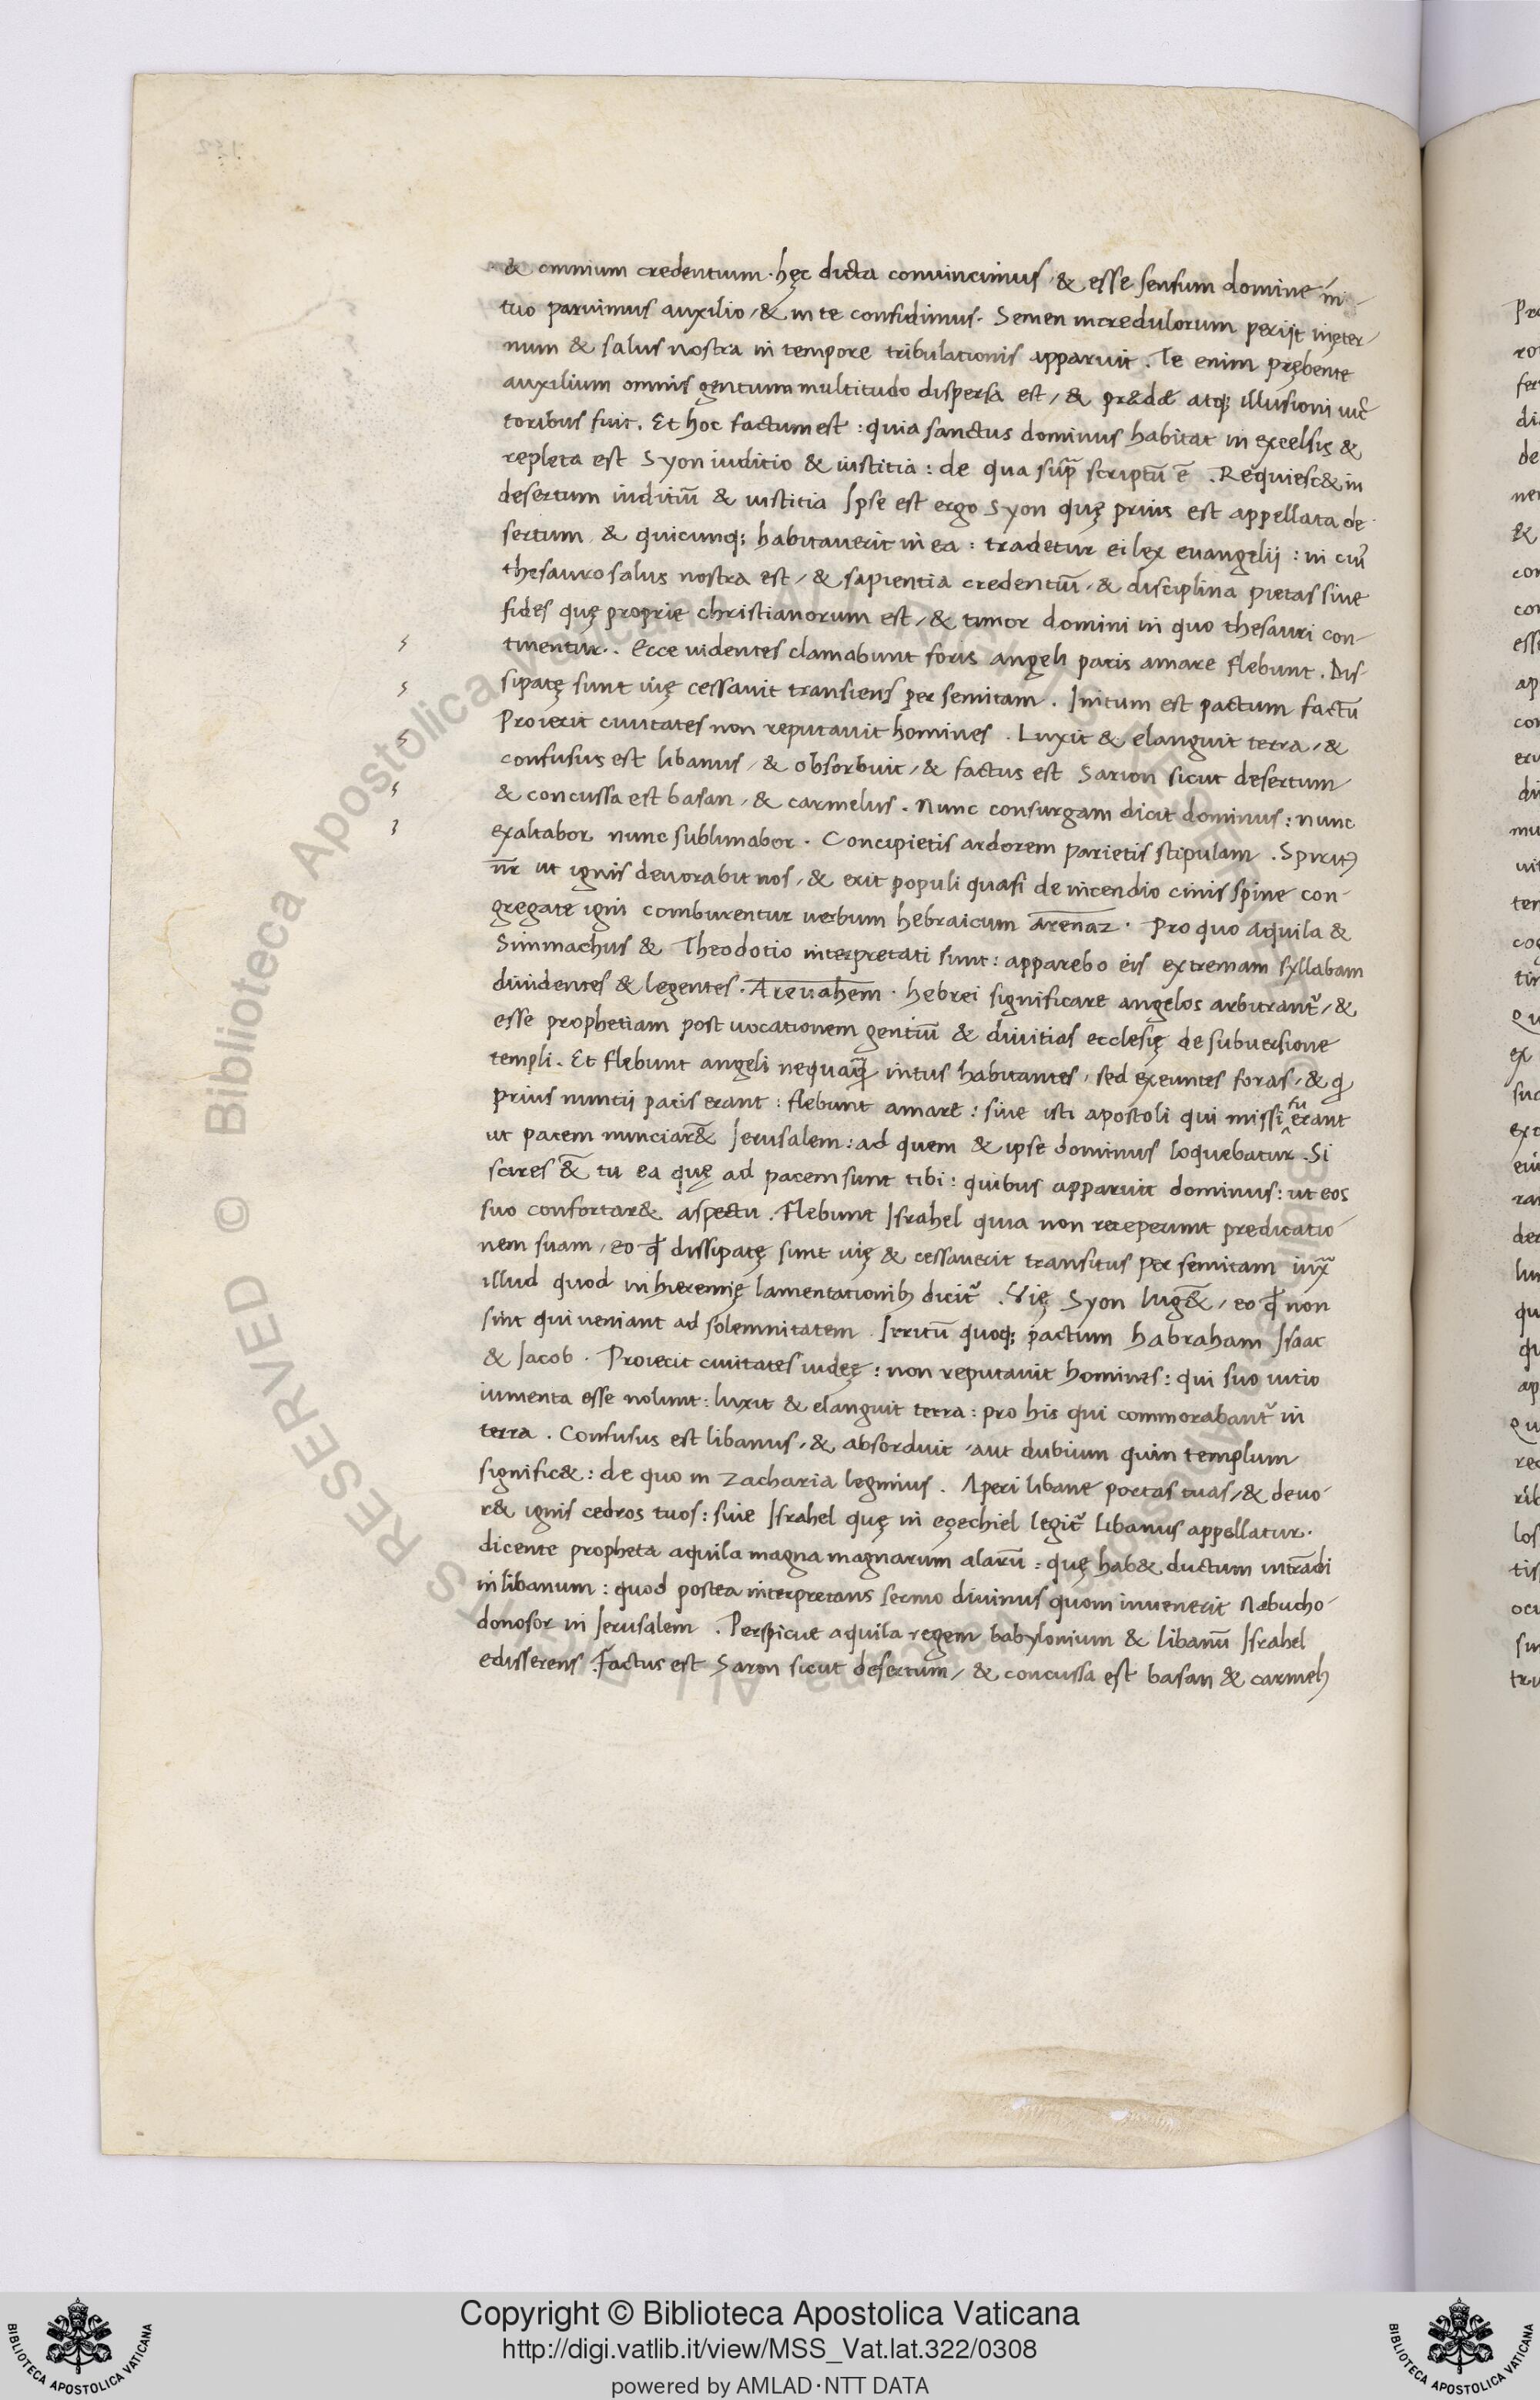 & omnium credentium. hęc dicta conuincimus, & esse sensum domine in
tuo paruimus auxilio, & in te confidimus. Semen incredulorum perijt inęter
num & salus nostra in tempore tribulationis apparuit. Te enim prębente
auxilium omnis gentium multitudo dispersa est, & prædæ atq; illusioni uic̄
toribus fuit. Et hoc factum est: quia sanctus dominus habitat in excelsis &
repleta est Syon iuditio & iustitia: de qua sup̄ scriptū ē. Requiesc& in
desertum iuditiū & iustitia Ipse est ergo Syon quę prius est appellata de
sertum & quicunq; habitauerit in ea: tradetur ei lex euangelij: in cuiꝰ
thesauro salus nostra est, & sapientia credentiū, & disciplina pietas siue
fides quę proprie christianorum est, & timor domini in quo thesauri con-
tinentur. Ecce uidentes clamabunt foris angeli pacis amare flebunt. Dis-
sipatę sunt uię cessauit transiens per semitam. Initum est pactum factū
Proiecit ciuitates non reputauit homines. Luxit & elanguit terra, &
confusus est libanus, & obsorbuit, & factus est Saron sicut desertum
& concussa est basan, & carmelus. Nunc consurgam dicit dominus: nunc
exaltabor nunc sublimabor. Concipietis ardorem parietis stipulam. Spiritꝰ
nr̄ ut ignis deuorabit nos, & erit populi quasi de incendio cinis spine con-
gregate igni comburentur uerbum hebraicum arenaz. Pro quo Aquila &
Simmachus & Theodotio interpretati sunt: apparebo eis extremam syllabam
diuidentes & legentes. Areuahem. hebrei significare angelos arbitrantᷣ, &
esse prophetiam post uocationem gentiū & diuitias ecclesię de subuersione
templi. Et flebunt angeli nequaꝙ̄ intus habitantes, sed exeuntes foras, & ꝙ
prius nuntij pacis erant: flebunt amare: siue isti apostoli qui missi ^fu^erant
ut pacem nunciar& Jerusalem: ad quem & ipse dominus loquebatur. Si
scires & tu ea quę ad pacem sunt tibi: quibus apparuit dominus: ut eos
suo confortar& aspectu. Flebunt Israhel quia non receperunt predicatio
nem suam, eo ꝙ dissipatę sunt uię & cessauerit transitus per semitam iux̄
illud quod in hieremię lamentationibꝫ dicitᷣ. Vię Syon lug&, eo ꝙ non
sint qui ueniant ad solemnitatem. Irritū quoq; pactum habraham Isaac
& Jacob. Proiecit ciuitates iudeę: non reputauit homines: qui suo uitio
iumenta esse nolunt: luxit & elanguit terra: pro his qui commorabantᷣ in
terra. Confusus est libanus, & absorduit, aut dubium quin templum
signific&: de quo in Zacharia legimus. Aperi libane portas tuas, & deuo-
r& ignis cedros tuos: siue Israhel quę in eçechiel legitᷣ Libanus appellatur.
dicente propheta aquila magna magnarum alarū: quę hab& ductum intrādi
in libanum: quod postea interpretans sermo diuinus quom inuenerit Nabucho-
donosor in Jerusalem. Perspicue aquila regem babylonium & libanū Israhel
edisserens. Factus est Saron sicut desertum, & concussa est basan & carmelꝰ
Copyright © Biblioteca Apostolica Vaticana
http://digi.vatlib.it/view/MSS_Vat.lat.322/0308
powered by AMLAD·NTT DATA